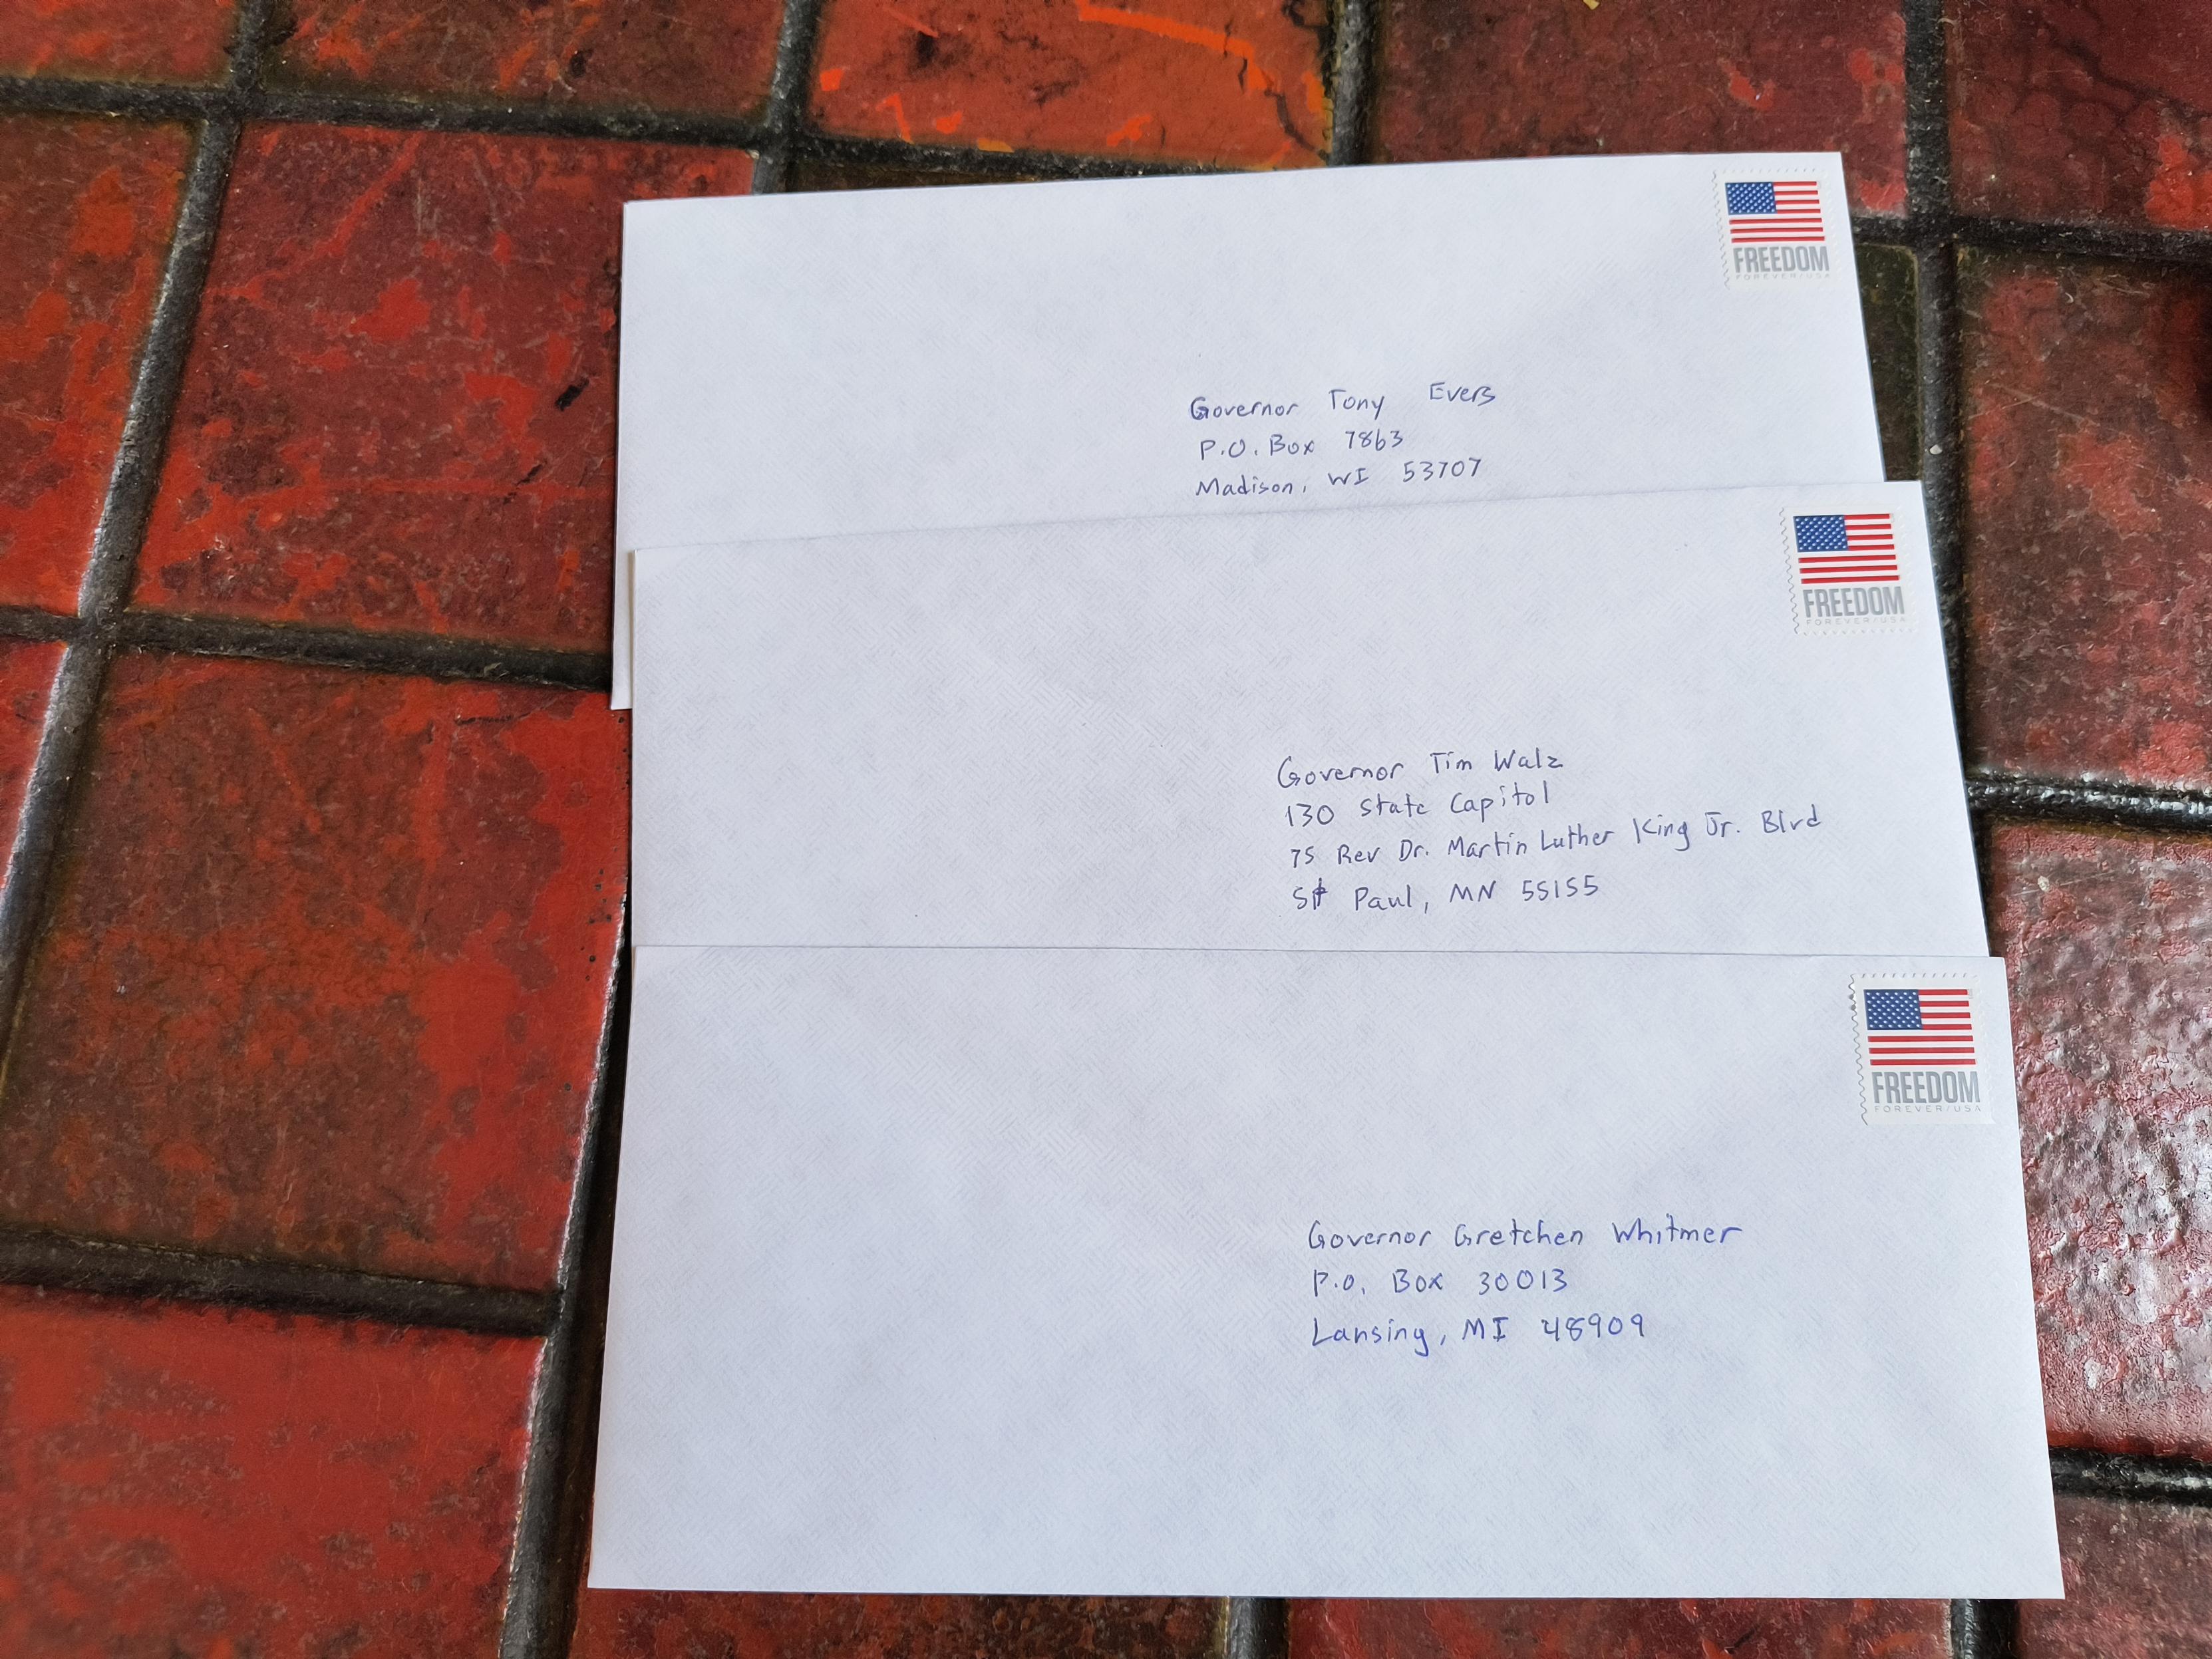 FREEDOM
FOREVER/USA
Governor Tony Evers
P.O. Box 7863
Madison, WI 53707
FREEDOM
FOREVER/USA
Governor Tim Walz
130 State Capitol
75 Rev Dr. Martin Luther King Jr. Blvd
St Paul, MN 55155
FREEDOM
FOREVER/USA
Governor Gretchen Whitmer
P.O. Box 30013
Lansing, MI 48909